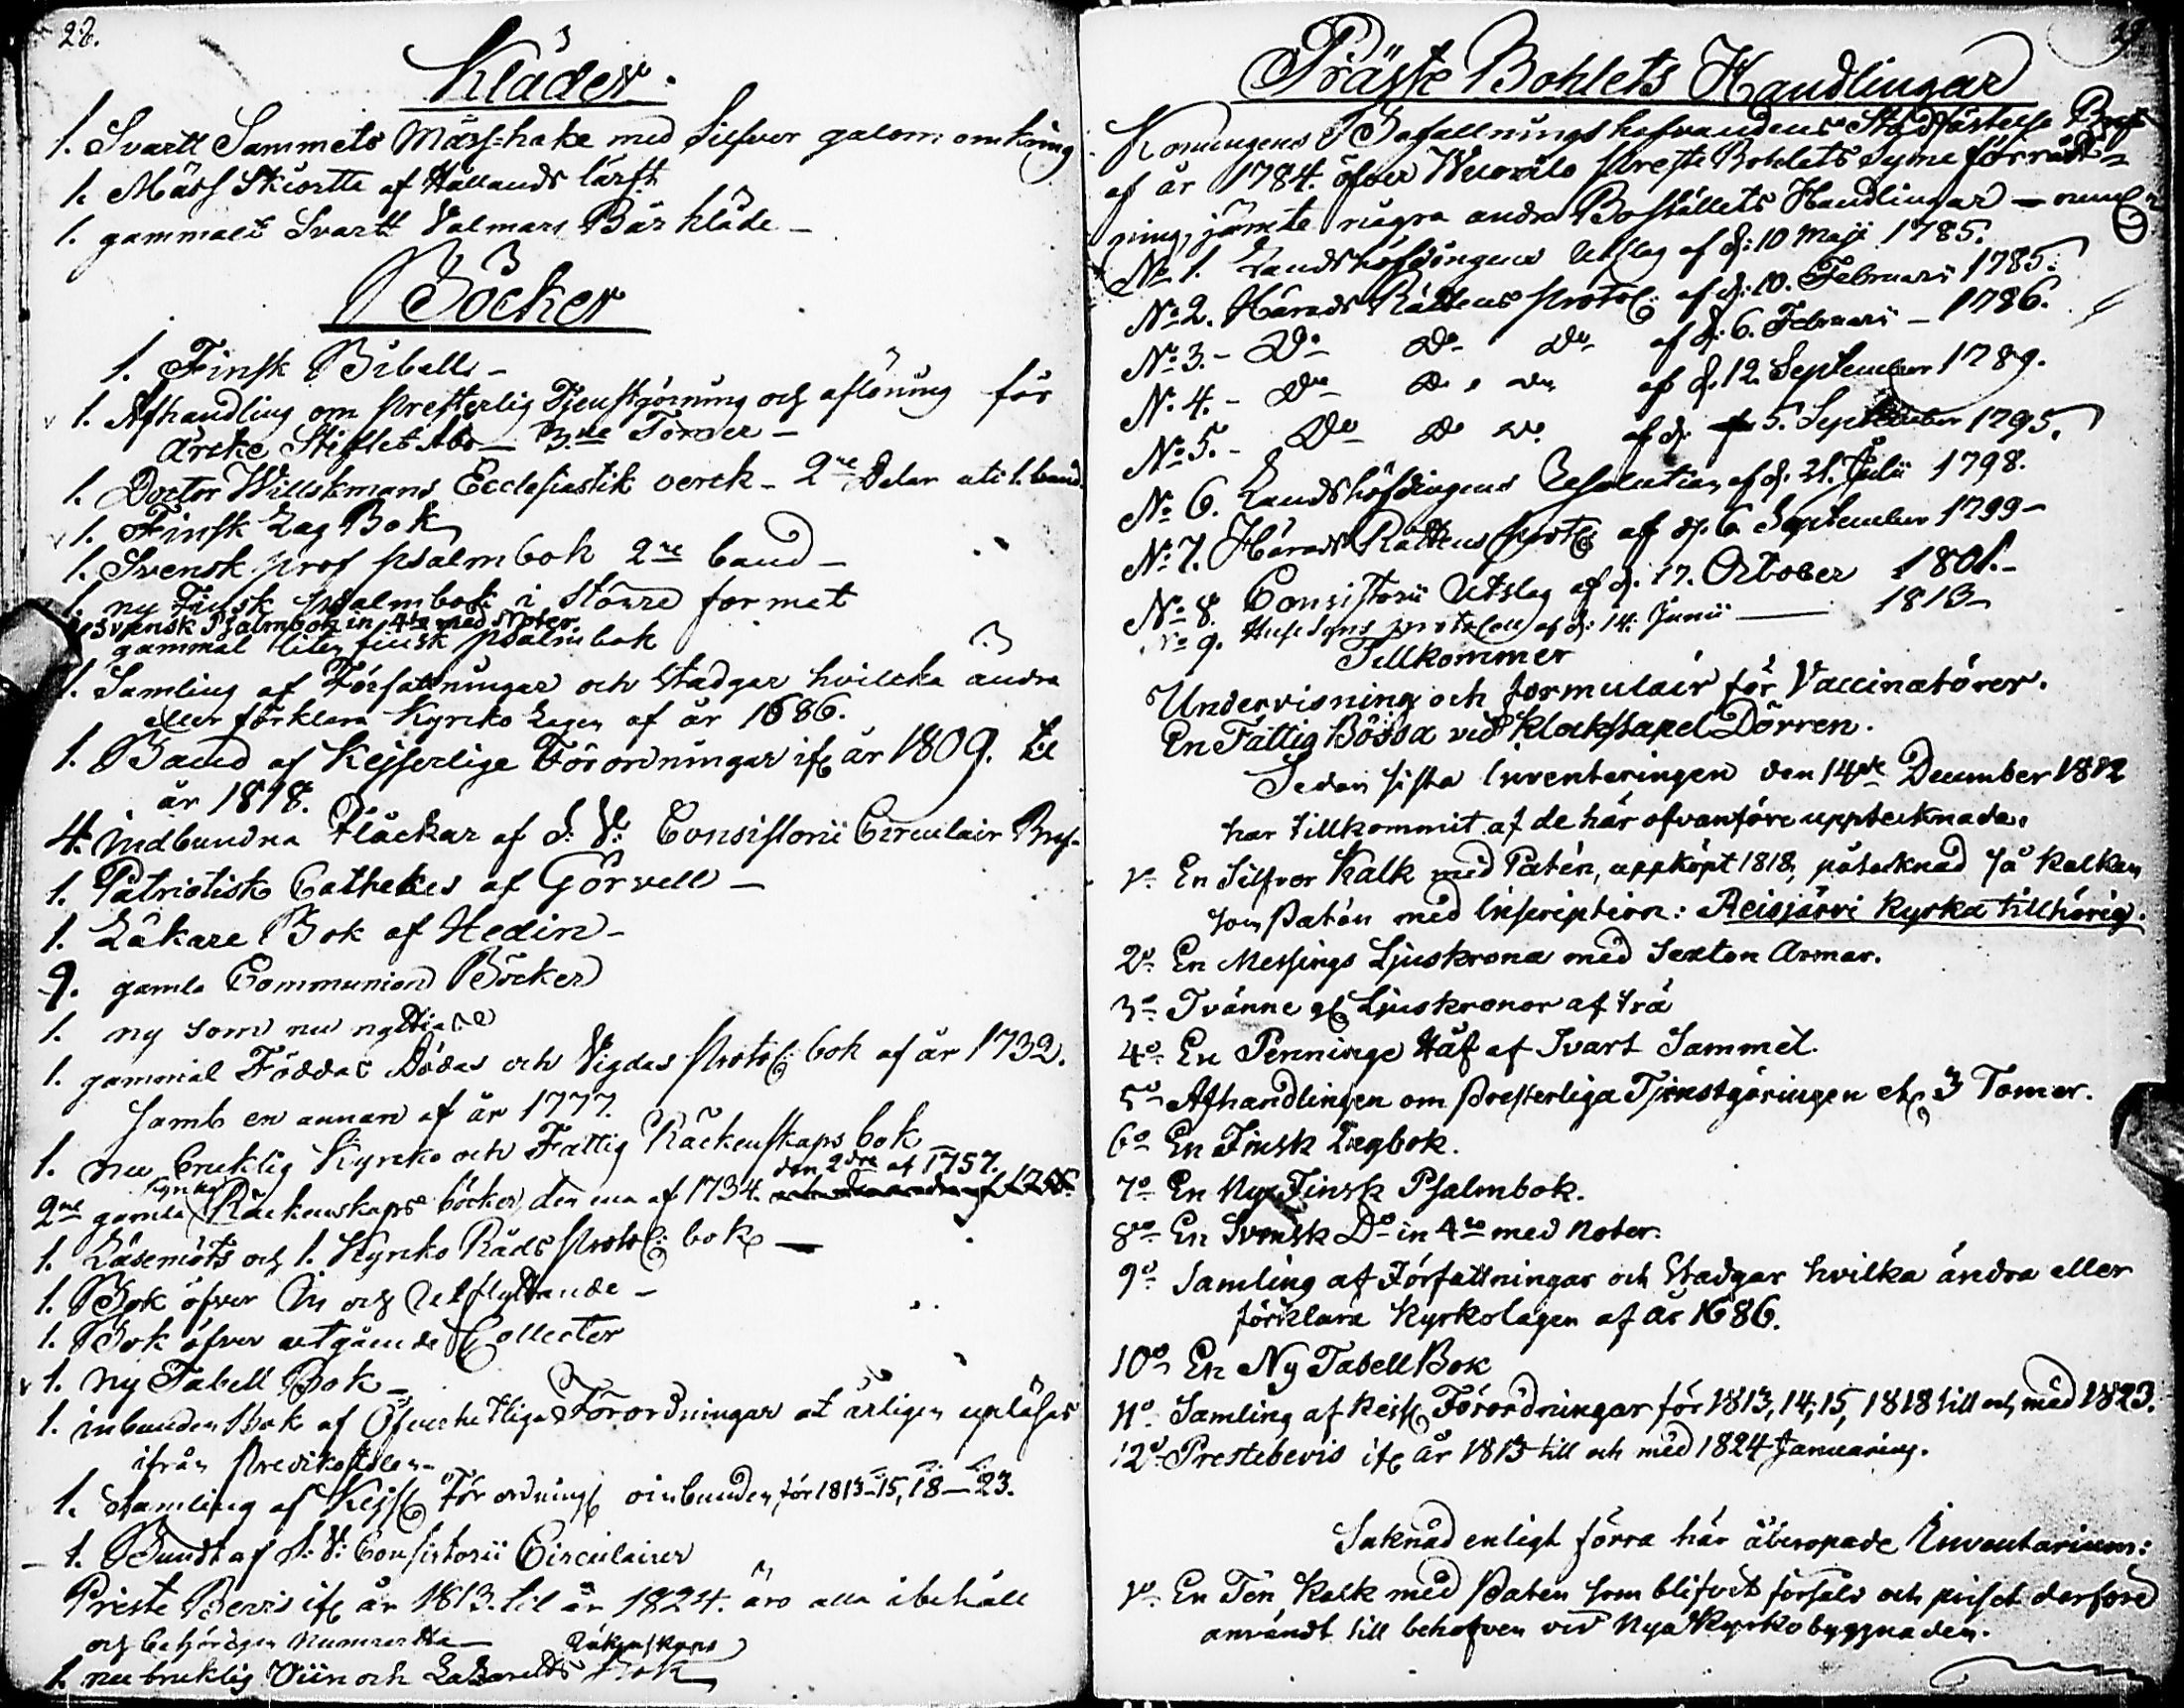 28.
Kläder.
1. Svartt Sammets Mäss-hake med silfver galom omkring
1. Mäss Skiortta af Hållands lärft
1. gammalt Svartt Valmars Bår kläde -
Böcker
1. Finsk Bibell -
1. Afhandling om presterlig Tjenstgörning och aflöning för
Ärcke Stiftet Åbo - 3.ne Tomer -
1. Doctor Willskmans Ecclesiastik verck - 2ne Delar uti 1. band.
1. Finsk Lag Bok
1. Svensk prof psalmbok 2ne band -
1. ny Finsk psalmbok i större format
1 Svensk Psalmbok in 4to med Noter.
gammal liten finsk psalmbok
1. Samling af Författningar och Stadgar hvilcka ändra
eller förklara Kyrcko Lagen af år 1686.
1. Band af Kejserlige Förordningar ifr. år 1809. til
år 1818.
4. indbundna Häckar af S: V: Consistorii Circulair Bref.
1. Patriotisk Cathekes af Görvell -
1. Läkare Bok af Hedin -
9. gamla Communion Böcker
1. ny som nu nyttias
1. gammal Föddas Dödas och Vigdas Protoc: bok af år 1732.
samt en annan af år 1777.
1. nu bruklig Kyrcko och Fattig Räckenskaps bok
den 2dra af 1757.
2ne gamla kyrko Räckenskaps böcker, den ena af 1734.
1. Läsemöts och 1. Kyrcko Råds Protoc: bok -
1. Bok öfver In och Utflyttande -
1. Bok öfver utgående Collecter
1. ny Tabell Bok -
1. inbunden Bok af Öfverhetliga Förordningar at årligen upläsas
ifrån Predikostolen -
1. Samling af Kejs. Förordning. oinbunden för 1813-15, 18-23.
- 1. Bundt af S: V: Consistorii Circulairer
Preste Bevis ifr. år 1813. til år 1824. äro alla i behåll
och behörigen Numrerta -
Räkenskaps
1. nu bruklig Viin och Lazaretts Bok
29
Präste Bohlets Handlingar
Konungens Befallningshafvandens Stadfästelse Bref
af år 1784. öfver Wuorilo Preste Bohlets Syne förrätt-
ning, jämte några andra Boställets Handlingar -
No 1. Landshöfdingens Utslag af d: 10 Maji 1785.
No 2. Härads Rättens Protoc: af d: 10. Februarii 1785.
No 3. - Do Do Do af d. 6. Februarii - 1786.
No 4. - Do Do Do af d. 12. September 1789.
No 5. - Do Do Do af d. 5. September 1795.
No 6. Landshöfdingens Resolution af d. 21. Julii 1798.
No 7. Härads Rättens Protoc af d. 6 September 1799 -
No 8. Consistorii Utslag af d. 17. October 1801. -
No 9. Husesyns protocoll af d: 14: Junii — 1813 -
Tillkommer
Undervisning och formulair för Vaccinatörer.
En Fattig Bössa vid Klockstapel Dörren.
Sedan sista Inventeringen den 14de December 1812
har tillkommit af de här ofvanföre upptecknade.
1o En Silfver Kalk med Patén, uppköpt 1818, påtecknad så Kalken
som Patén med Inscription: Reisjärvi Kyrka tillhörig.
2o En Messings Ljuskrona med Sexton Armar.
3o Tvänne gl. Ljuskronor af trä
4o En Penninge Håf af Svart Sammet.
5o Afhandlingen om Presterliga Tjenstgöringen etc. 3 Tomer.
6o En Finsk Lagbok.
7o En Ny Finsk Psalmbok.
8o En Svensk Do in 4to med Noter.
9o Samling af Författningar och Stadgar hvilka ändra eller
förklara Kyrkolagen af år 1686.
10o En Ny Tabell Bok
11o Samling af Kejs. Förordningar för 1813, 14, 15, 1818 till och med 1823.
12o Prestebevis ifr. År 1813 till och med 1824 Januarius.
Saknad enligt förra här åberopade Inventarium:
1o En Ten Kalk med Paten som blifvit försåld och priset derföre
användt till behofven vid Nya Kyrkobyggnaden.